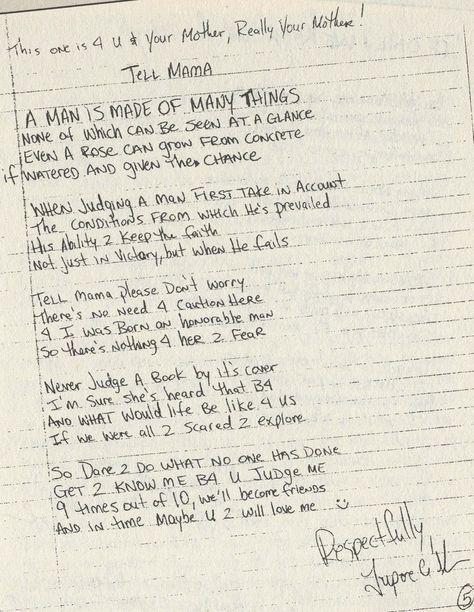 This one is 4 U & Your Mother, Really Your Mother!
Tell Mama
A MAN IS MADE OF MANY THINGS
NONE OF WHICH CAN BE SEEN AT A GLANCE
EVEN A ROSE CAN GROW FROM CONCRETE
if WATERED AND GIVEN THE CHANCE
WHEN Judging A man FIRST TAKE IN Account
The CONDITIONS FROM WHICH He's prevailed
His Ability 2 Keep the faith
Not just in Victory, but when He fails
Tell mama please Don't worry
There's No Need 4 Caution Here
4 I was Born an honorable man
So there's Nothing 4 her 2 Fear
Never Judge A Book by it's cover
I'm Sure She's heard that B4
AND WHAT Would life Be like 4 US
If we were all 2 Scared 2 explore
So Dare 2 Do WHAT NO ONE HAS DONE
GET 2 KNOW ME B4 U JUDGE ME
9 times out of 10, we'll become friends
AND in time Maybe U 2 will love me
Respectfully,
5